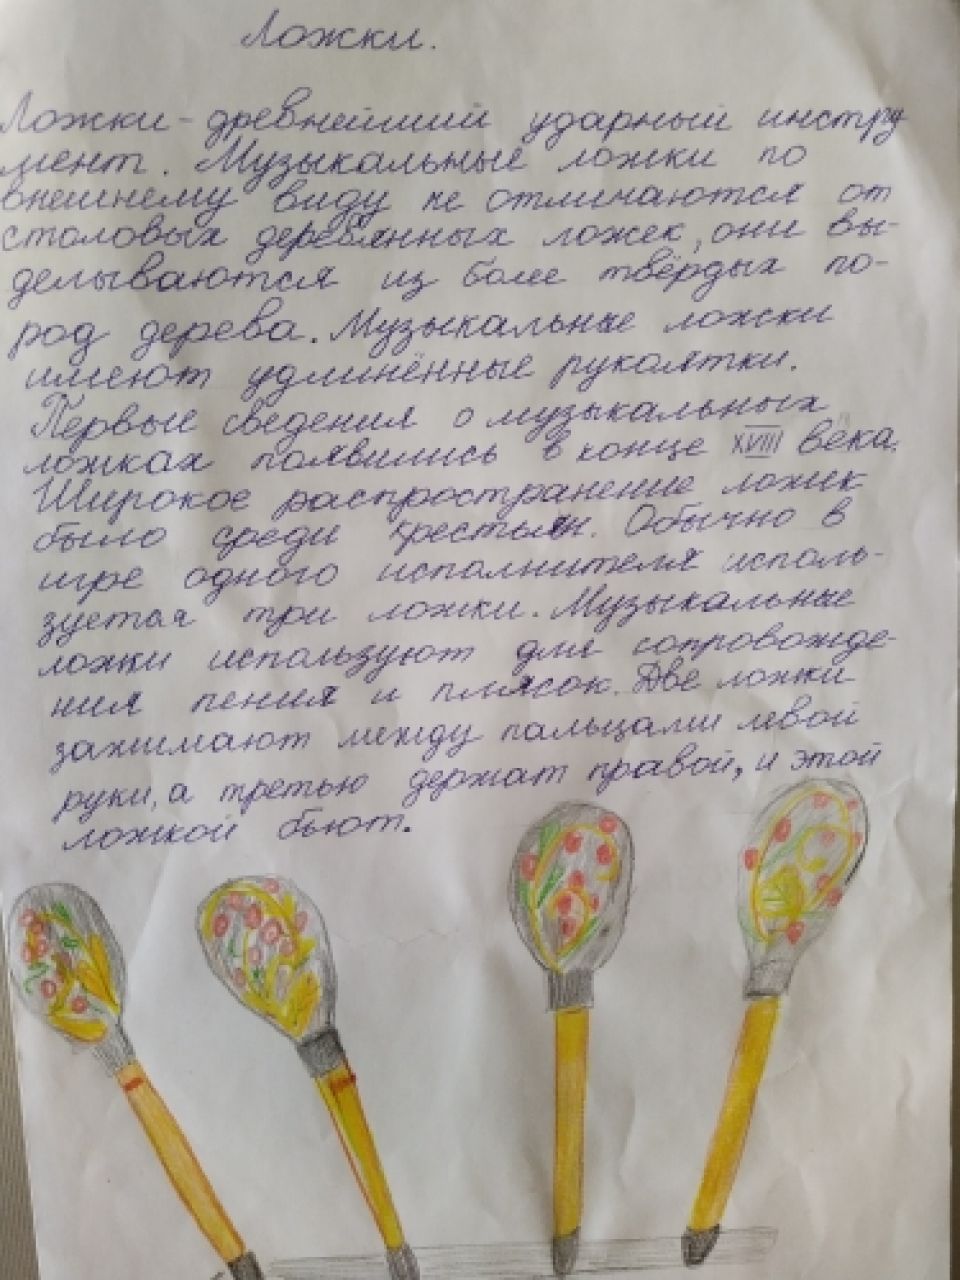 Ложки.
Ложки - древнейший ударный инстру
мент. Музыкальные ложки по
внешнему виду не отличаются от
столовых деревянных ложек, они вы-
делываются из более твёрдых по-
род дерева. Музыкальные ложки
имеют удлинённые рукоятки.
Первые сведения о музыкальных
ложках появились в конце XVIII века.
Широкое распространение ложек
было среди крестьян. Обычно в
игре одного исполнителя исполь-
зуется три ложки. Музыкальные
ложки используют для сопровожде-
ния пения и плясок. Две ложки
зажимают между пальцами левой
руки, а третью держат правой, и этой
ложкой бьют.